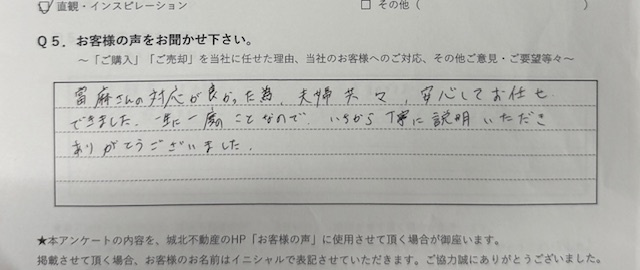 直観・インスピレーション □ その他（ ）
Q５．お客様の声をお聞かせ下さい。
～「ご購入」「ご売却」を当社に任せた理由、当社のお客様へのご対応、その他ご意見・ご要望等々～
當麻さんの対応が良かった為、夫婦共々、安心してお任せ
できました。一生に一度のことなので、いちから丁寧に説明いただき
ありがとうございました。
★本アンケートの内容を、城北不動産のHP「お客様の声」に使用させて頂く場合が御座います。
掲載させて頂く場合、お客様のお名前はイニシャルで表記させていただきます。ご協力誠にありがとうございました。